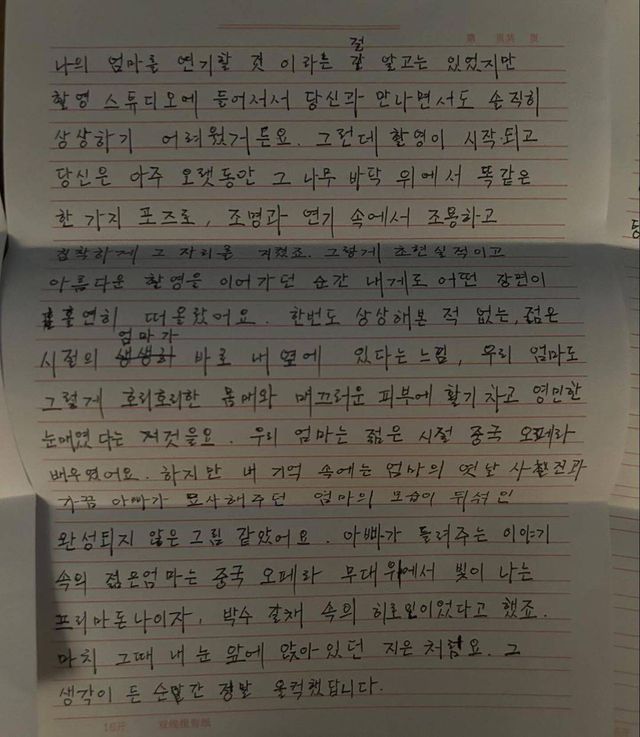 第 页共 页
절
나의 엄마를 연기할 것 이라는 잘 알고는 있었지만
촬영 스튜디오에 들어서서 당신과 만나면서도 솔직히
상상하기 어려웠거든요. 그런데 촬영이 시작되고
당신은 아주 오랫동안 그 나무 바닥 위에서 똑같은
한 가지 포즈로, 조명과 연기 속에서 조용하고
침착하게 그 자리를 지켰죠. 그렇게 초현실적이고
아름다운 촬영을 이어가던 순간 내게도 어떤 장면이
홀연히 떠올랐어요. 한번도 상상해본 적 없는, 젊은
엄마가
시절의 생생하 바로 내 옆에 있다는 느낌, 우리 엄마도
그렇게 호리호리한 몸매와 매끄러운 피부에 활기차고 영민한
눈매였다는 저것을요. 우리 엄마는 젊은 시절 중국 오페라
배우였어요. 하지만 내 기억 속에는 엄마의 옛날 사진과
가끔 아빠가 묘사해주던 엄마의 모습이 뒤섞인
완성되지 않은 그림 같았어요. 아빠가 들려주는 이야기
속의 젊은엄마는 중국 오페라 무대위에서 빛이 나는
프리마돈나이자, 박수 갈채 속의 히로인이었다고 했죠.
마치 그때 내 눈 앞에 앉아있던 지은 처럼요. 그
생각이 든 순간 정말 울컥했답니다.
16开 双线报告纸